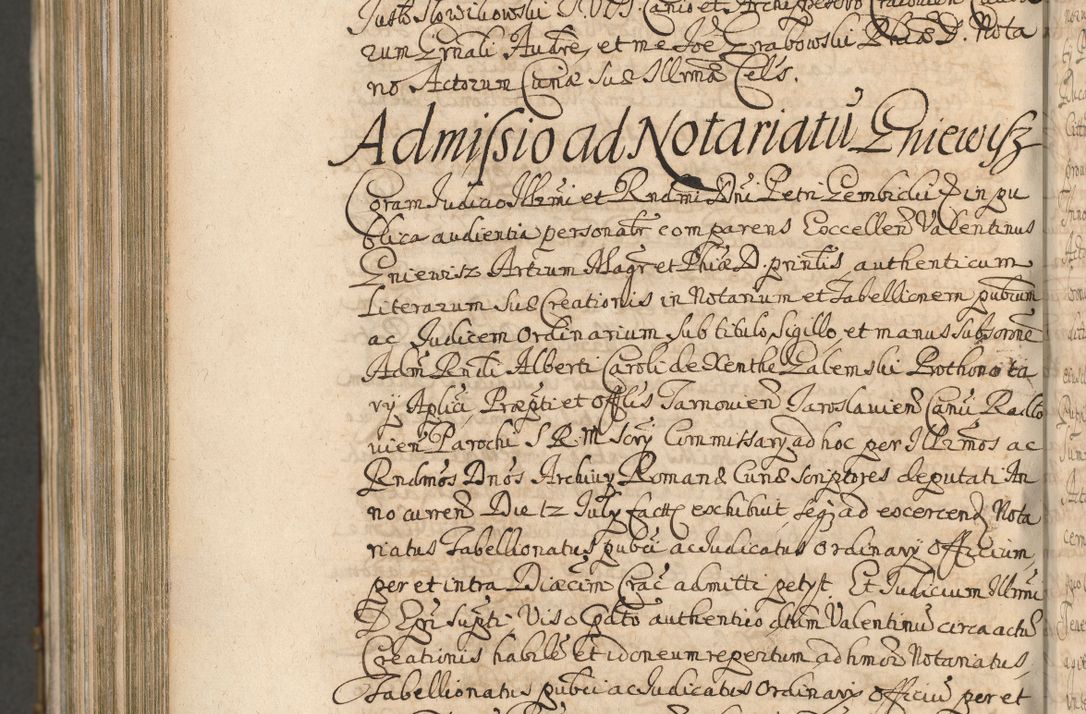 Justo Słowikowski I.V.D. Canco et Archipresbro Cracovien Causa
rum Grnali Audre, et me Joe Grabowski Phiae D. Nota
rio Actorum Curiae Suae Illrmae Cels.
Admissio ad Notariatū Gniewisz
Coram Judicio Illrmi et Rndmi Dni Petri Gembicki Ep in pu
blica audientia personalr comparens Excellen Valentinus
Gniewisz Artium Magr et Phiae D. prntis authenticum
Literarum Suae Creationis in Notarium et Tabellionem publicum
ac Judicem Ordinarium sub titulo, Sigillo, et manus subscrone
Adm Rndi Alberti Caroli de Xenthe Galemski Prothonota
rij Aplici, Praepti et Offlis Tarnovien Jaroslavien Canci Radło
vien Parochi S. R. M. Scrij Commissarij ad hoc per Illrmos ac
Rndmos Dnos Archivij Romanae Curiae Scriptores deputati An
no curren Die 12 July factu exhibuit, seqz ad exercend Nota
riatus Tabellionatus publci ac Judicatus ordinarij officium,
per et intra Diaecim Crac admitti petyt. Et Judicium Illrmi
D. Epi supti Viso Ppto authentico dtum Valentinū circa actū
Creationis habilē et idoneum repertum ad hmoi Notariatus,
Tabellionatus publci ac Judicatus Ordinarij officiū per et